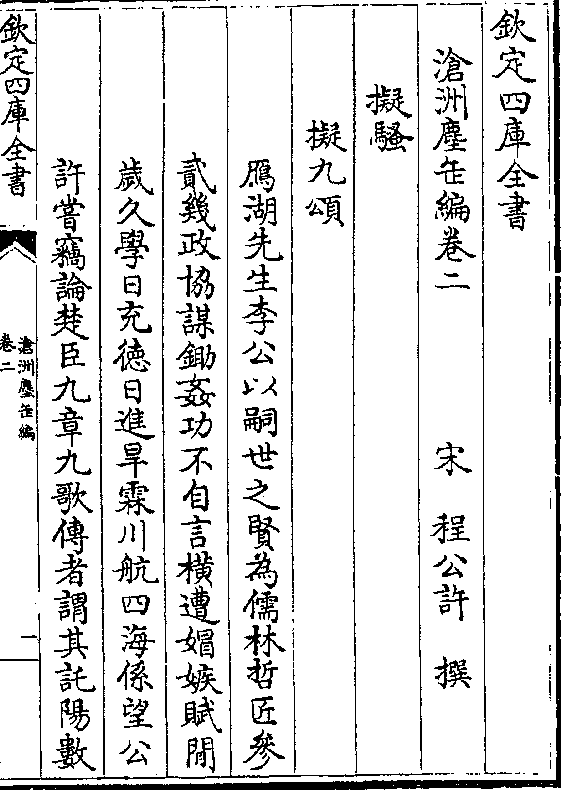 欽定四庫全書
滄洲塵缶編卷二
宋 程公許 撰
擬騷
擬九頌
鴈湖先生李公以嗣世之賢為儒林哲匠參
貳幾政協謀鋤姦功不自言橫遭媢嫉賦閒
歲久學日充徳日進旱霖川航四海係望公
許嘗竊論楚臣九章九歌傳者謂其託陽數
欽定四庫全書
滄洲塵缶編
卷二
一